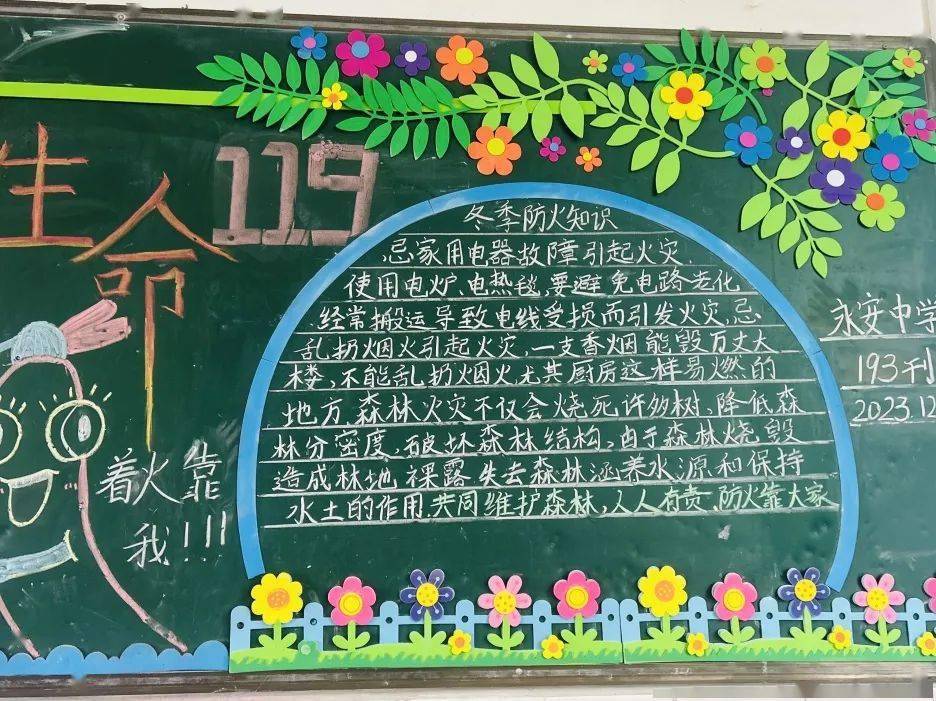 生命119
冬季防火知识
忌家用电器故障引起火灾.
使用电炉、电热毯,要避免电路老化
经常搬运导致电线受损而引发火灾,忌
乱扔烟火引起火灾,一支香烟能毁万丈大
楼,不能乱扔烟火尤其厨房这样易燃的
地方.森林火灾不仅会烧死许多树,降低森
林分密度,破坏森林结构,由于森林烧毁
造成林地裸露失去森林涵养水源和保持
水土的作用.共同维护森林,人人有责、防火靠大家
着火靠
我!!!
永安中学
193刊
2023.12